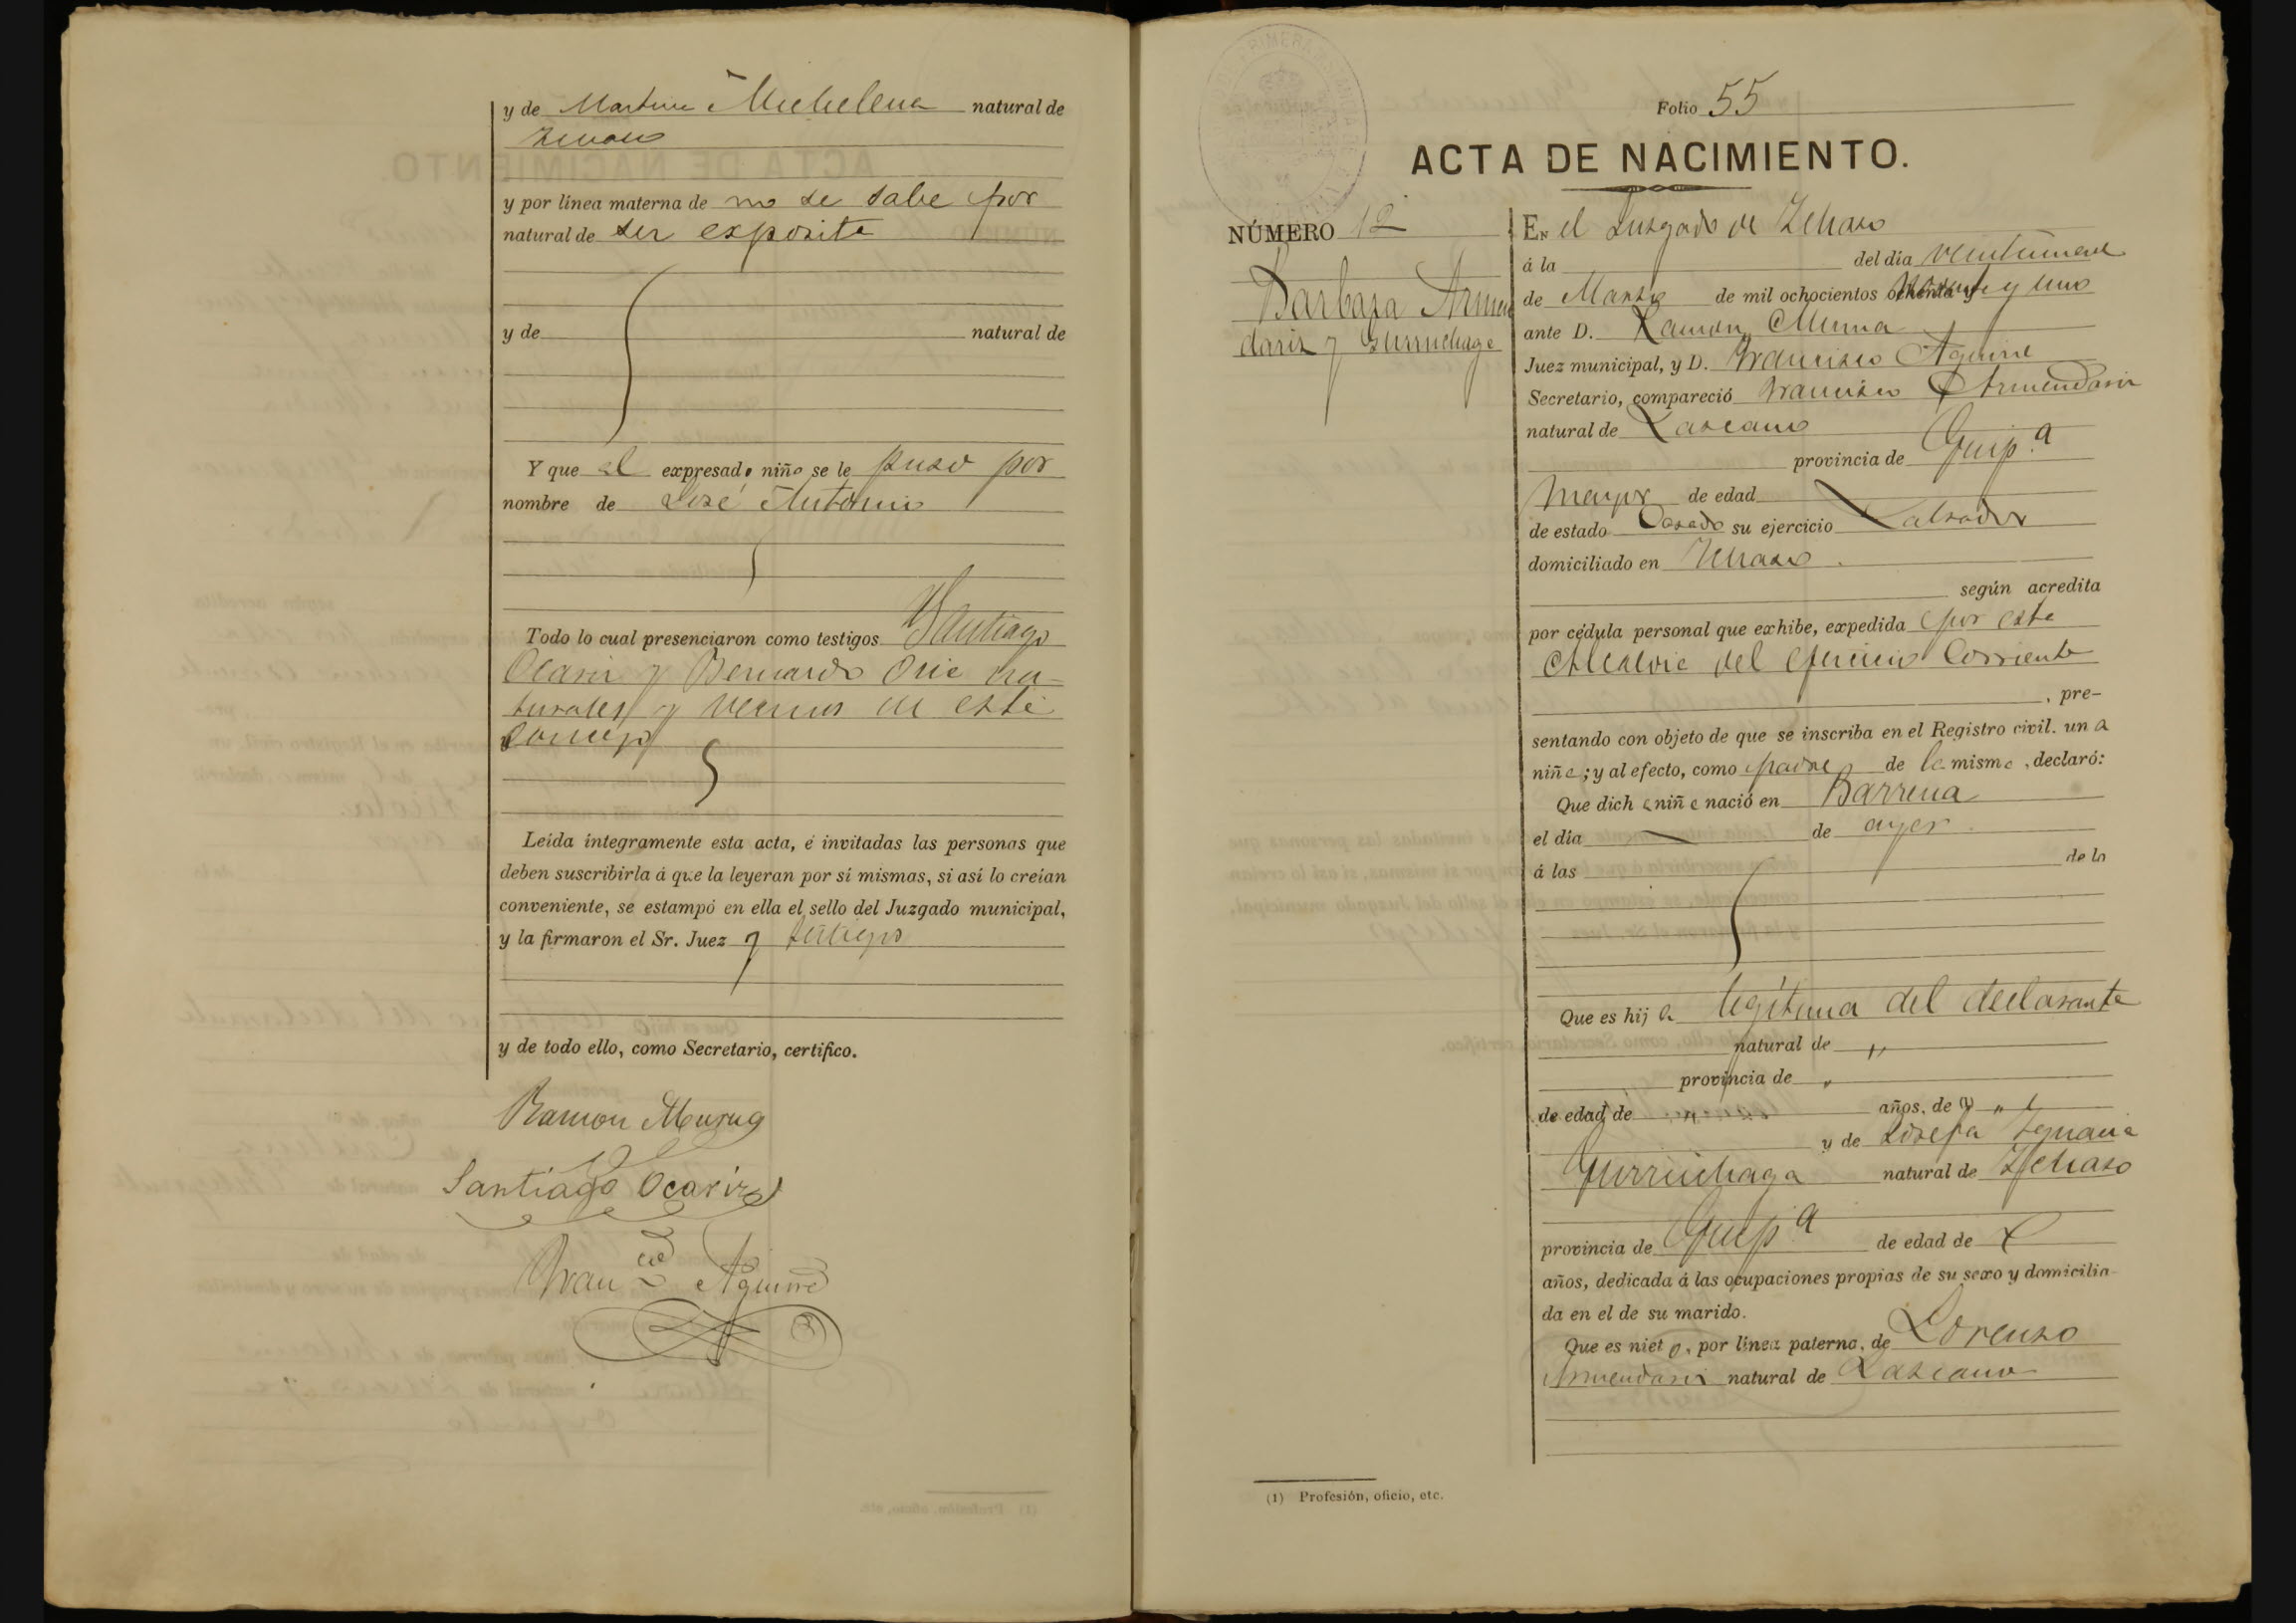 y de Martina Michelena natural de
y por línea materna de no se sabe por
natural de ser exposita
y de natural de
Y que el expresado niño se le puso por
nombre de José Antonio
Todo lo cual presenciaron como testigos Santiago
Ocariz y Bernardo Orie na-
turales y vecinos de este
Concejo
Leída íntegramente esta acta, é invitadas las personas que
deben suscribirla á que la leyeran por sí mismas, si así lo creían
conveniente, se estampó en ella el sello del Juzgado municipal,
y la firmaron el Sr. Juez y testigos
y de todo ello, como Secretario, certifico.
Ramon Murua
Santiago Ocariz
Franco Aguirre
Folio 55
ACTA DE NACIMIENTO.
NÚMERO 12
Barbara Armen
dariz y Gurruchaga
En el Juzgado de Zeharo
á la del día veintinueve
de Marzo de mil ochocientos ochenta y Noventa y uno
ante D. Ramon Murua
Juez municipal, y D. Francisco Aguirre
Secretario, compareció Francisco Armendariz
natural de Lazcano
provincia de Guip.a
Mayor de edad
de estado Casado su ejercicio Labrador
domiciliado en Zeharo
según acredita
por cédula personal que exhibe, expedida por esta
Alcaldia del ejercicio Corriente
, pre-
sentando con objeto de que se inscriba en el Registro civil. un a
niña; y al efecto, como padre de la misma, declaró:
Que dich a niña nació en Barrena
el día de ayer
á las de la
Que es hij a legítima del declarante
natural de "
provincia de "
de edad de años, de "
y de Josefa Ignacia
Gurruchaga natural de Zeharo
provincia de Guip.a de edad de
años, dedicada á las ocupaciones propias de su sexo y domicilia-
da en el de su marido.
Que es niet a, por línea paterna, de Lorenzo
Armendariz natural de Lazcano
(1) Profesión, oficio, etc.